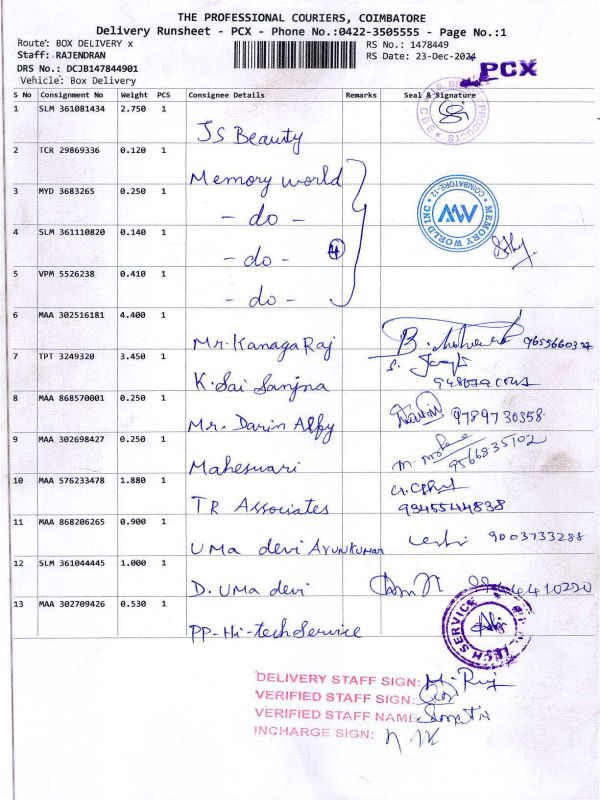 THE PROFESSIONAL COURIERS, COIMBATORE
Delivery Runsheet - PCX - Phone No.:0422-3505555 - Page No.:1
Route: BOX DELIVERY x
RS No.: 1478449
Staff: RAJENDRAN
RS Date: 23-Dec-2024
DRS No.: DCJB147844901
PCX
Vehicle: Box Delivery
S No Consignment No Weight PCS Consignee Details Remarks Seal & Signature
1 SLM 361081434 2.750 1
JS Beauty
2 TCR 29869336 0.120 1
Memory world
3 MYD 3683265 0.250 1
- do -
MEMORY WORLD INC
COIMBATORE-12
4 SLM 361110820 0.140 1
- do - 4
5 VPM 5526238 0.410 1
- do -
6 MAA 302516181 4.400 1
Mr. Kanaga Raj
7 TPT 3249320 3.450 1
K. Sai Sanjna
8 MAA 868570001 0.250 1
Mr. Darin Alfy 9789730358
9 MAA 302698427 0.250 1
Maheswari 9566835102
10 MAA 576233478 1.880 1
TR Associates 9345544838
11 MAA 868206265 0.900 1
Uma devi Ayunkumar 9003733288
12 SLM 361044445 1.000 1
D. Uma devi
13 MAA 302709426 0.530 1
PP-Hi-tech Service
DELIVERY STAFF SIGN:
VERIFIED STAFF SIGN:
VERIFIED STAFF NAME
INCHARGE SIGN: